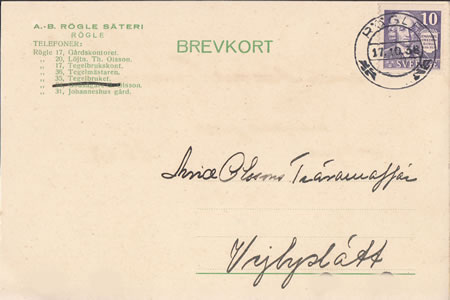 A.-B. RÖGLE SÄTERI
RÖGLE
TELEFONER:
Rögle 17, Gårdskontoret.
" 20, Löjtn. Th. Olsson.
" 17, Tegelbrukskont.
" 36, Tegelmästaren.
" 35, Tegelbruket.
" 31, Johanneshus gård.
BREVKORT
RÖGLE
17.10.38
10
SVERIGE
Olssons Trävaruaffär
Vejbyslätt